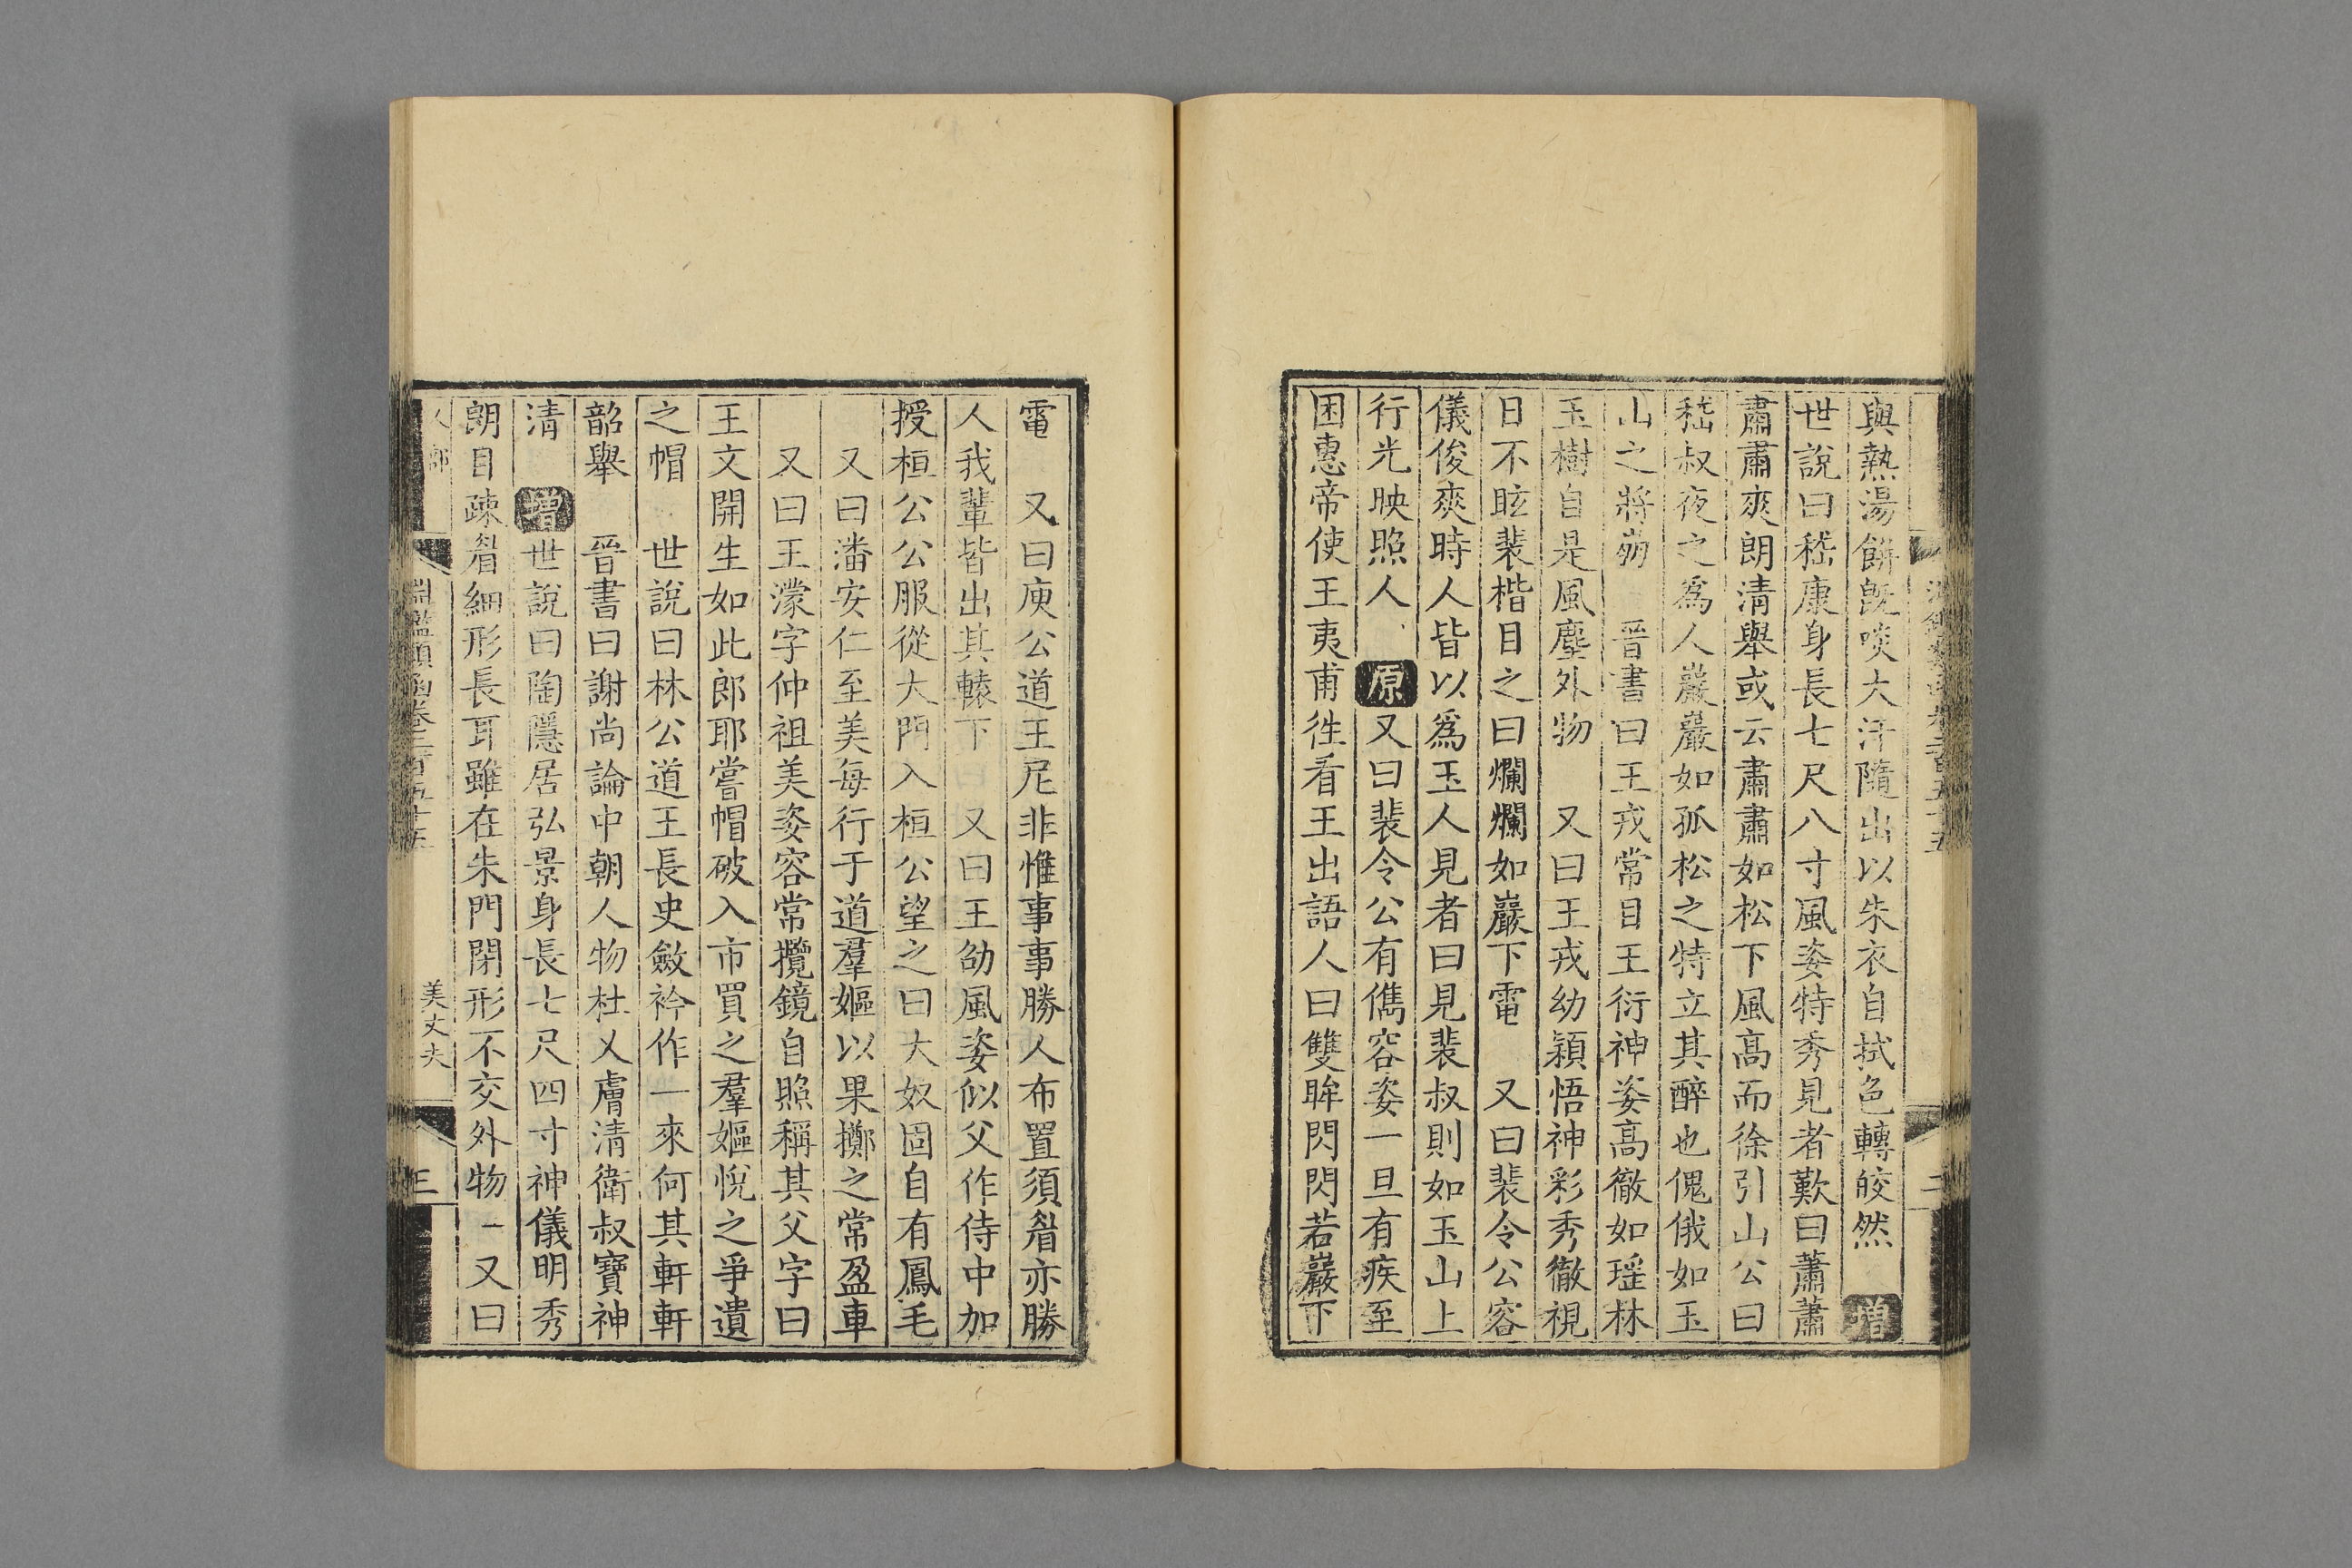 淵鑑類函卷二百五十五
二
與熱湯餅旣啖大汗隨出以朱衣自拭色轉皎然 增
世說曰嵇康身長七尺八寸風姿特秀見者歎曰蕭蕭
肅肅爽朗清舉或云肅肅如松下風高而徐引山公曰
嵇叔夜之爲人巖巖如孤松之特立其醉也傀俄如玉
山之將崩 晉書曰王戎常目王衍神姿高徹如瑶林
玉樹自是風塵外物 又曰王戎幼穎悟神彩秀徹視
日不眩裴楷目之曰爛爛如巖下電 又曰裴令公容
儀俊爽時人皆以爲玉人見者曰見裴叔則如玉山上
行光映照人 原 又曰裴令公有儁容姿一旦有疾至
困惠帝使王夷甫徃看王出語人曰雙眸閃閃若巖下
電 又曰庾公道王尼非惟事事勝人布置須眉亦勝
人我輩皆出其轅下 又曰王劭風姿似父作侍中加
授桓公公服從大門入桓公望之曰大奴固自有鳳毛
又曰潘安仁至美每行于道羣嫗以果擲之常盈車
又曰王濛字仲祖美姿容常攬鏡自照稱其父字曰
王文開生如此郎耶嘗帽破入市買之羣嫗悅之爭遺
之帽 世說曰林公道王長史斂衿作一來何其軒軒
韶舉 晉書曰謝尚論中朝人物杜乂膚清衛叔寶神
清 增 世說曰陶隱居弘景身長七尺四寸神儀明秀
朗目疎眉細形長耳雖在朱門閉形不交外物 又曰
人部
淵鑑類函卷二百五十五
美丈夫
三